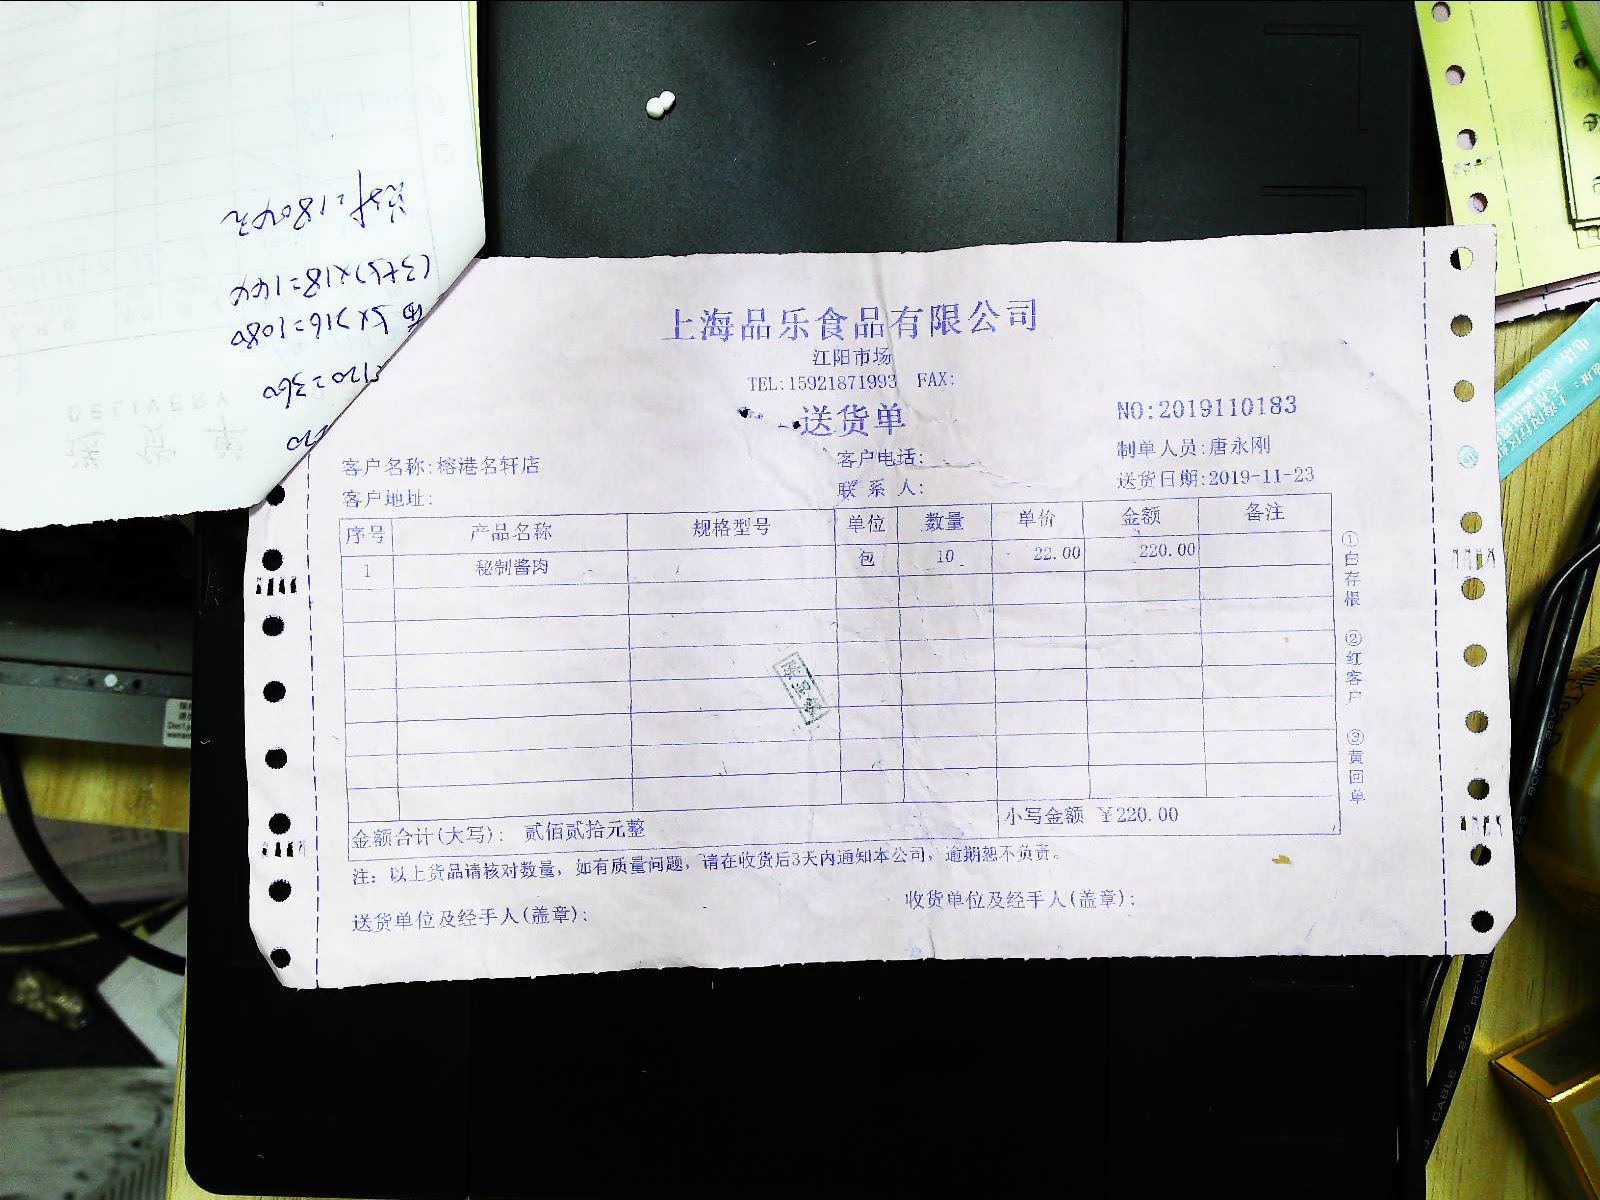 上海品乐食品有限公司
江阳市场
TEL:15921871993 FAX:
送货单
NO:2019110183
客户名称:榕港名轩店 客户电话: 制单人员:唐永刚
客户地址: 联系人: 送货日期:2019-11-23
序号 产品名称 规格型号 单位 数量 单价 金额 备注
1 秘制酱肉 包 10 22.00 220.00
金额合计(大写): 贰佰贰拾元整 小写金额 ¥220.00
注: 以上货品请核对数量, 如有质量问题, 请在收货后3天内通知本公司, 逾期恕不负责。
送货单位及经手人(盖章): 收货单位及经手人(盖章):
①白存根 ②红客户 ③黄回单
送货单
DELIVERY
120=360
5×216=1080
(3+5)×18=144